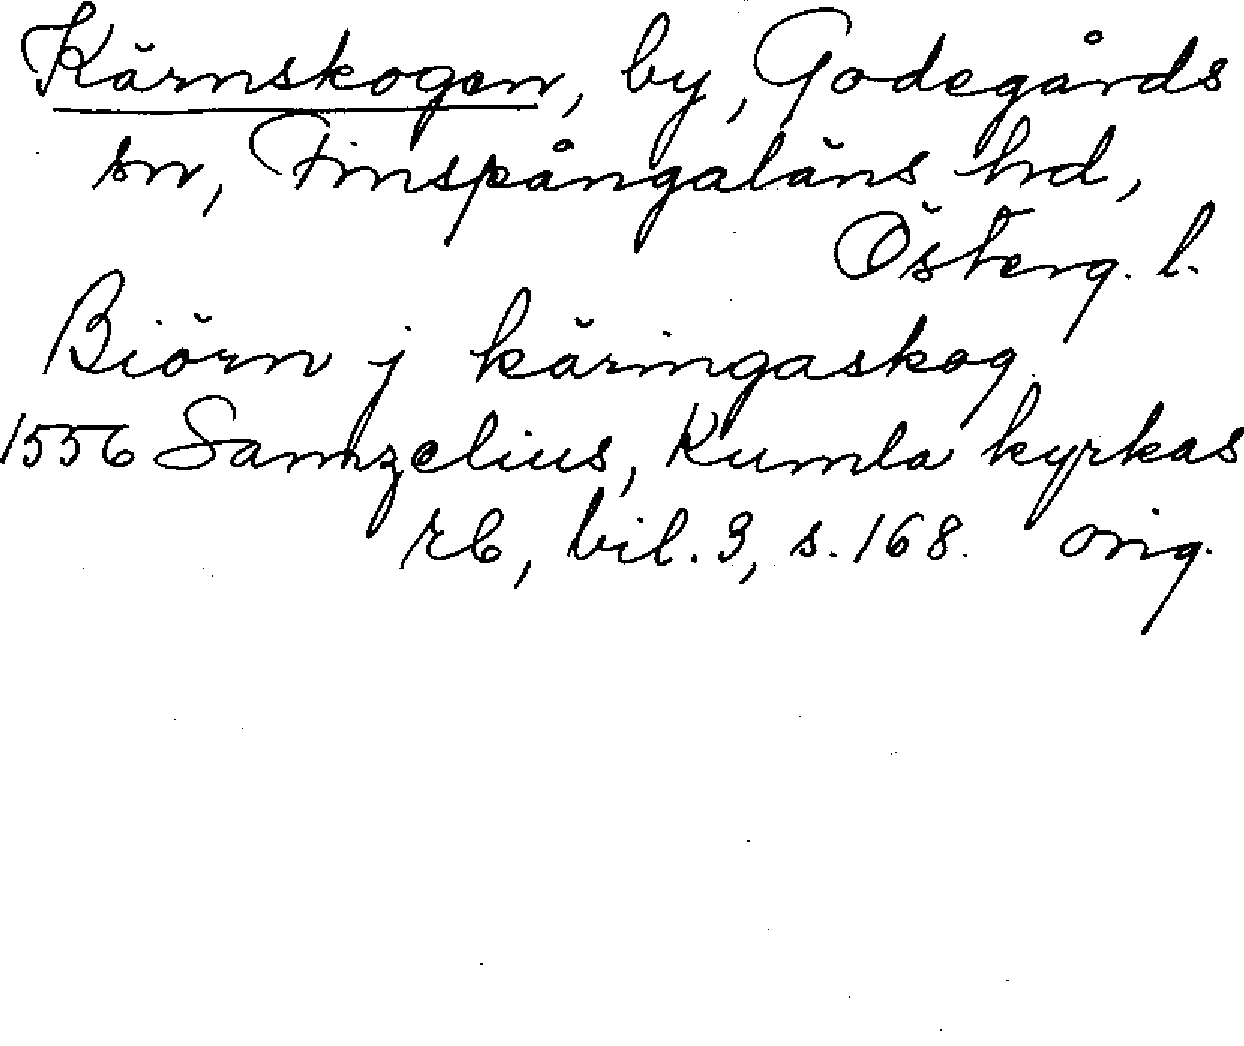 Kärnskogen, by, Godegårds
sn, Finspångaläns hd,
Österg. l.
Biörn j käringaskog
1556 Samzelius, Kumla kyrkas
rb, bil. 3, s. 168. orig.